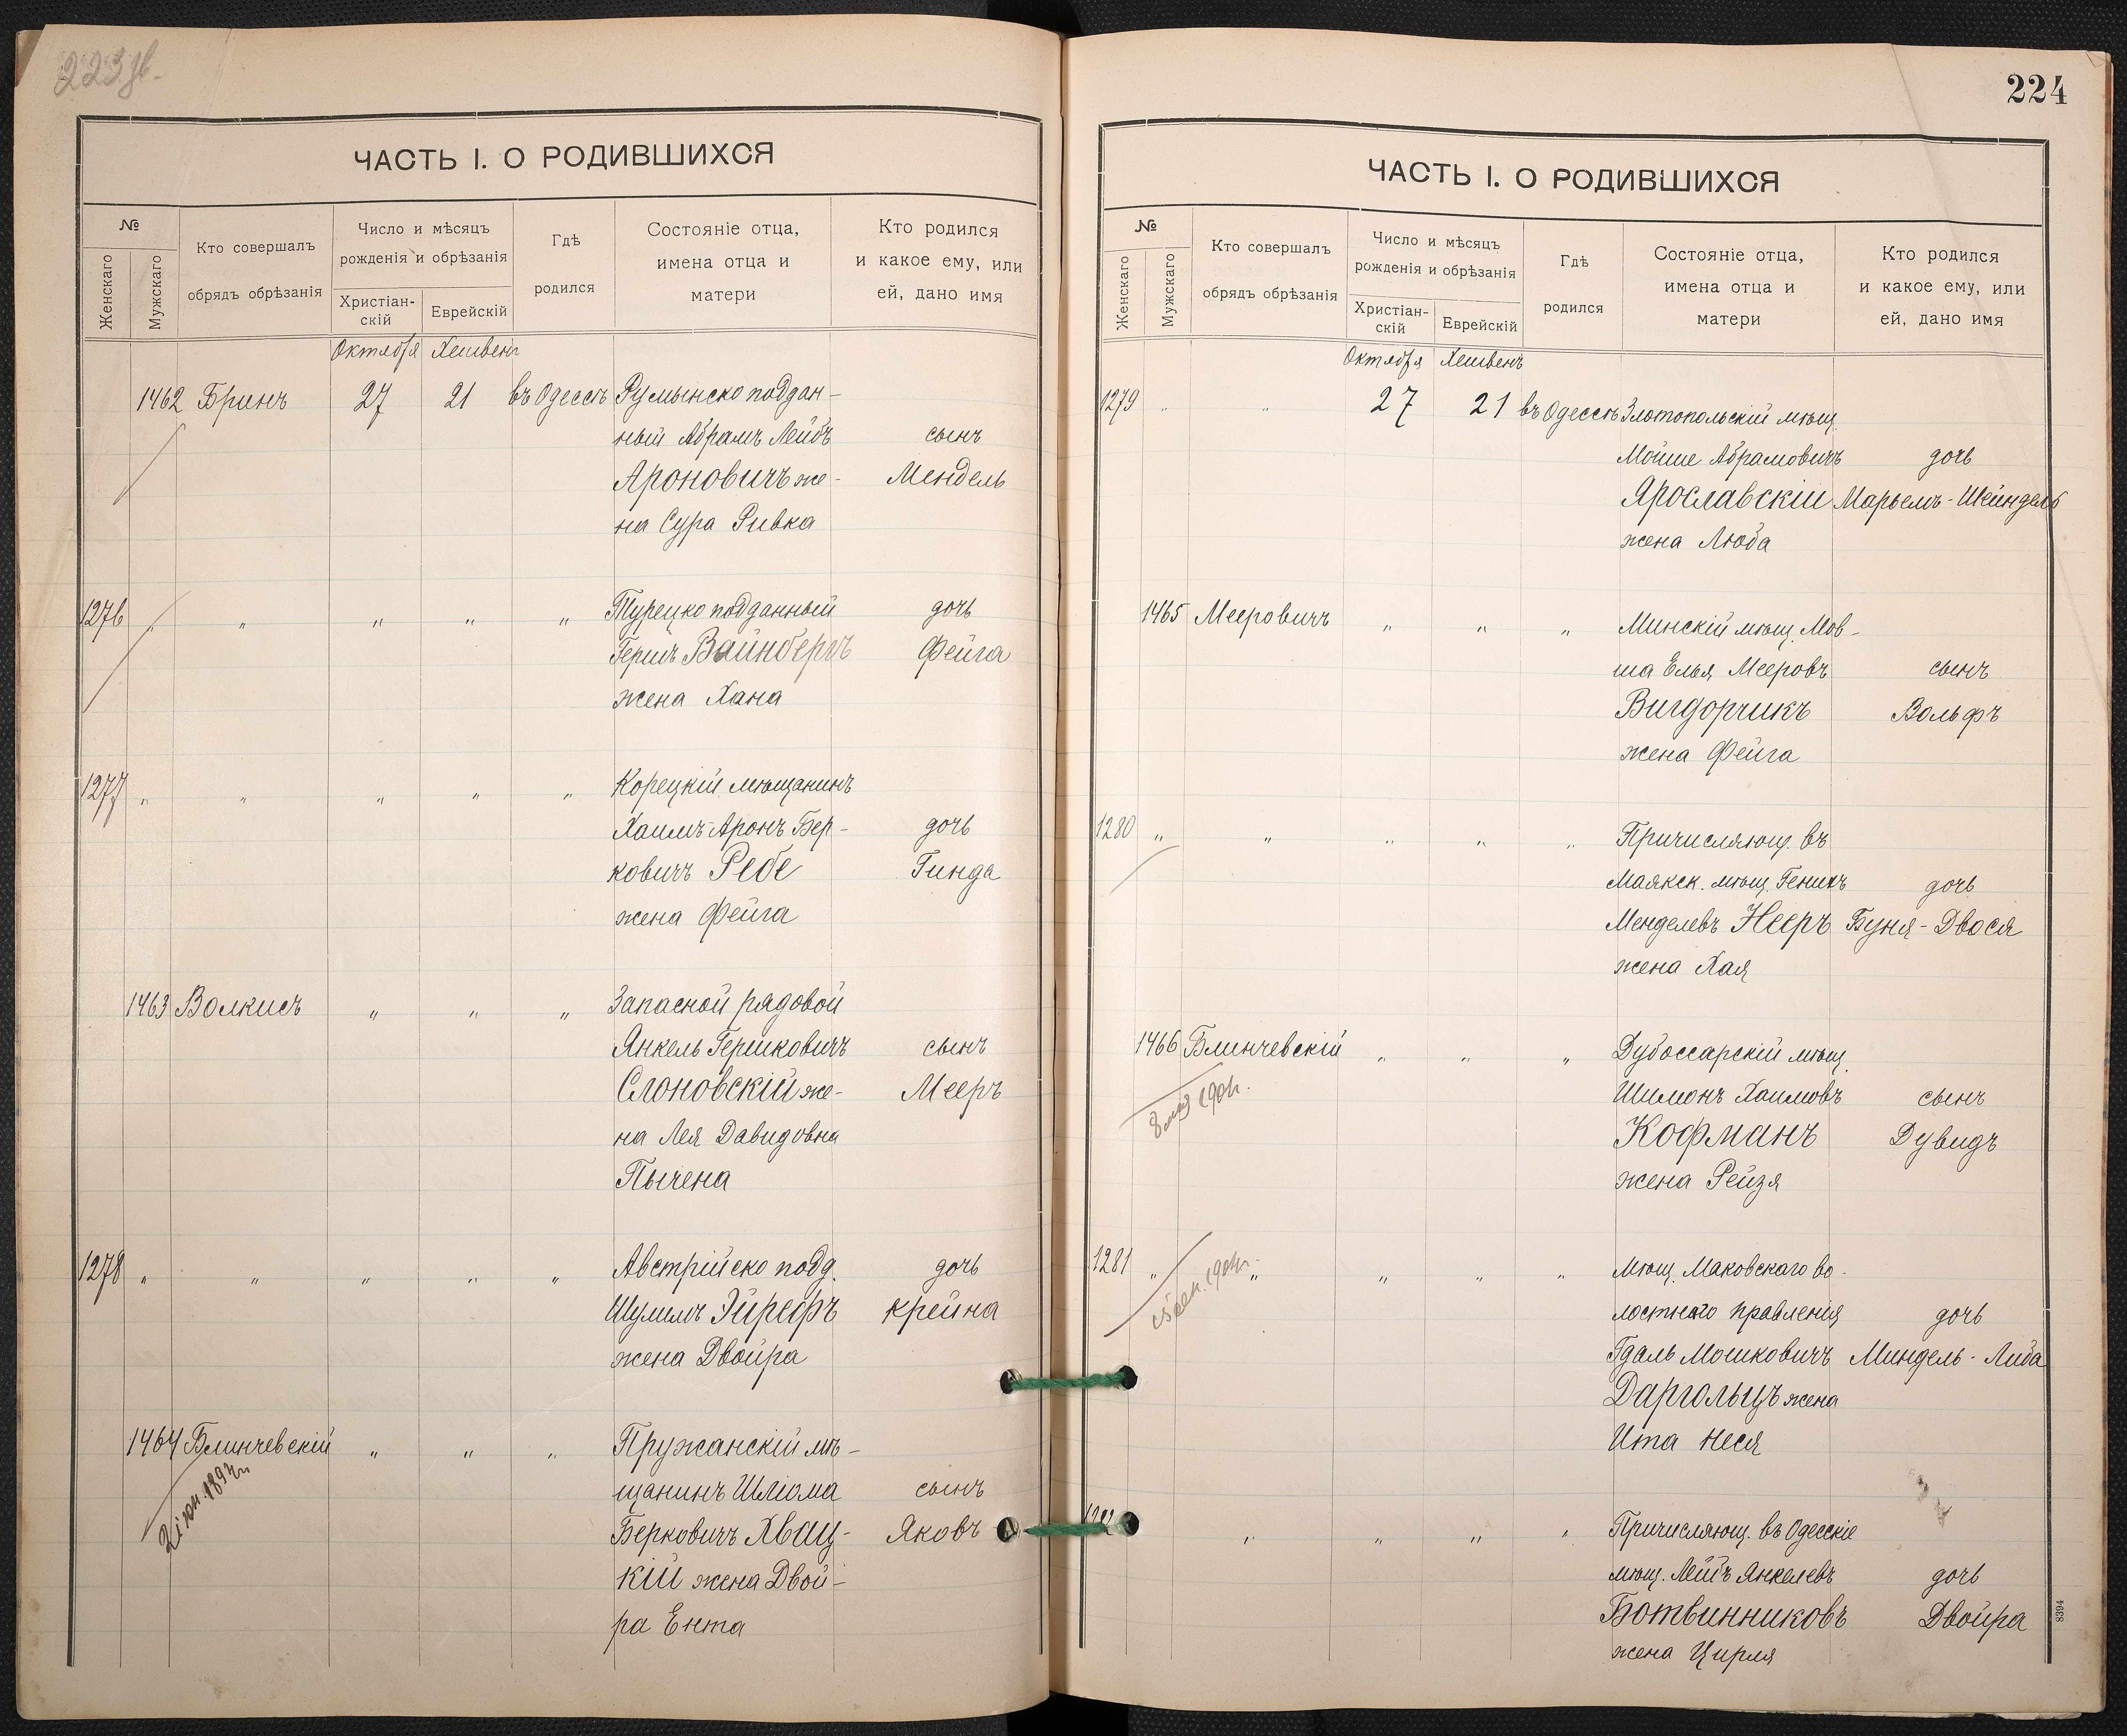 223 об.
ЧАСТЬ I. О РОДИВШИХСЯ
№
Женскаго
Мужскаго
Кто совершалъ
обрядъ обрѣзанія
Число и мѣсяцъ
рожденія и обрѣзанія
Христіан-
скій
Еврейскій
Гдѣ
родился
Состояніе отца,
имена отца и
матери
Кто родился
и какое ему, или
ей, дано имя
Октября Хешвенъ
1462 Бринъ 27 21 въ Одессѣ Румынско поддан-
ный Абрамъ Лейбъ сынъ
Ароновичъ же- Мендель
на Сура Ривка
1276 „ „ „ „ „ Турецко подданный дочь
Гершъ Вайнбергъ Фейга
жена Хана
1277 „ „ „ „ „ Корецкій мѣщанинъ
Хаимъ-Аронъ Бер- дочь
ковичъ Ребе Гинда
жена Фейга
1463 Волкисъ „ „ „ Запасной рядовой
Янкель Гершковичъ сынъ
Слоновскій же- Мееръ
на Лея Давидовна
Пычена
1278 „ „ „ „ „ Австрійско подд. дочь
Шулимъ Эйрефъ Крейна
жена Двойра
1464 Блинчевскій „ „ „ Пружанскій мѣ-
щанинъ Шлiома сынъ
Берковичъ Хвац- Яковъ
кій жена Двой-
ра Ента
224
ЧАСТЬ I. О РОДИВШИХСЯ
№
Женскаго
Мужскаго
Кто совершалъ
обрядъ обрѣзанія
Число и мѣсяцъ
рожденія и обрѣзанія
Христіан-
скій
Еврейскій
Гдѣ
родился
Состояніе отца,
имена отца и
матери
Кто родился
и какое ему, или
ей, дано имя
Октября Хешвенъ
1279 „ „ 27 21 въ Одессѣ Златопольскій мѣщ.
Мойше Абрамовичъ дочь
Ярославскій Марьемъ-Шейндель
жена Люба
1465 Мееровичъ „ „ „ Минскій мѣщ. Мов-
ша Елья Мееровъ сынъ
Вигдорчикъ Вольфъ
жена Фейга
1280 „ „ „ „ „ Причисляющ. въ
Маякск. мѣщ. Генихъ дочь
Менделевъ Нееръ Буня-Двося
жена Хая
1466 Блинчевскій „ „ „ Дубоссарскій мѣщ.
8 мая 1901г. Шимонъ Хаимовъ сынъ
Кофманъ Дувидъ
жена Рейзя
1281 „ „ „ „ „ Мѣщ. Маковскаго во-
лостнаго правленія дочь
Гдаль Мошковичъ Миндель-Либа
Даргольцъ жена
Ита Неся
„ „ „ „ Причисляющ. въ Одесскіе
мѣщ. Лейбъ Янкелевъ дочь
Ботвинниковъ Двойра
жена Цирля
8394